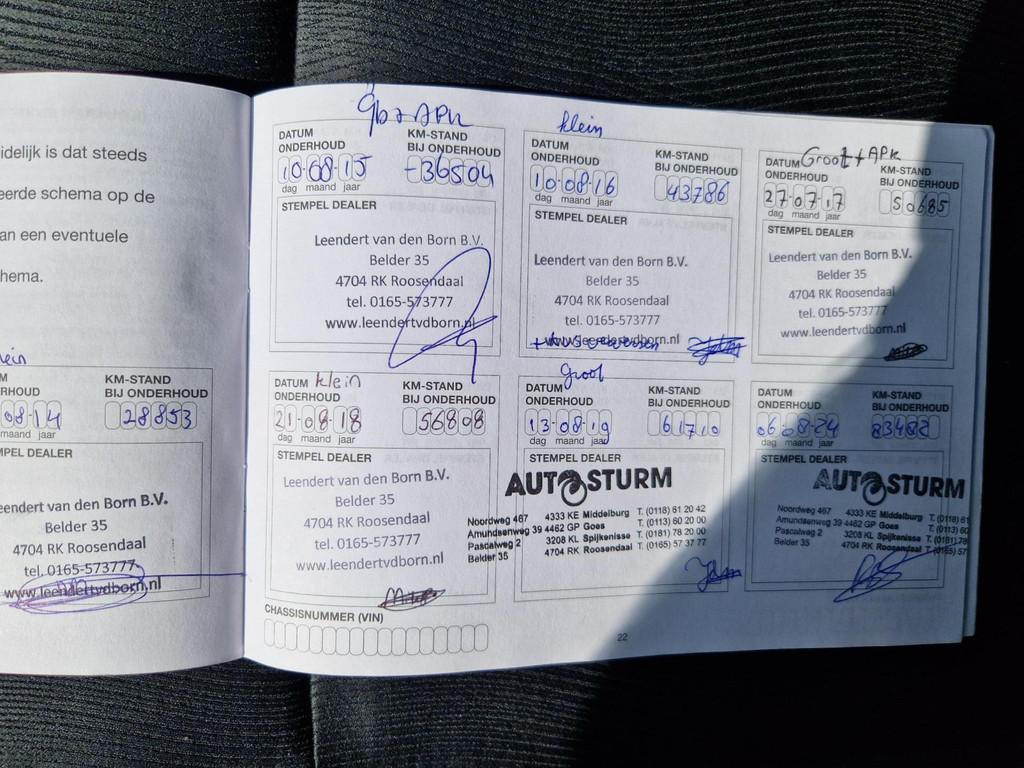 idelijk is dat steeds
eerde schema op de
an een eventuele
hema.
ein
M
RHOUD
KM-STAND
BIJ ONDERHOUD
08-14
28853
maand jaar
MPEL DEALER
eendert van den Born B.V.
Belder 35
4704 RK Roosendaal
tel. 0165-573777
www.leendertvdborn.nl
+ APK
DATUM
ONDERHOUD
KM-STAND
BIJ ONDERHOUD
10-08-15
36504
dag maand jaar
STEMPEL DEALER
Leendert van den Born B.V.
Belder 35
4704 RK Roosendaal
tel. 0165-573777
www.leendertvdborn.nl
klein
DATUM
ONDERHOUD
KM-STAND
BIJ ONDERHOUD
10-08-16
43786
dag maand jaar
STEMPEL DEALER
Leendert van den Born B.V.
Belder 35
4704 RK Roosendaal
tel. 0165-573777
www.leendertvdborn.nl
Groot + APK
DATUM
ONDERHOUD
KM-STAND
BIJ ONDERHOUD
27-07-17
50685
dag maand jaar
STEMPEL DEALER
Leendert van den Born B.V.
Belder 35
4704 RK Roosendaal
tel. 0165-573777
www.leendertvdborn.nl
klein
DATUM
ONDERHOUD
KM-STAND
BIJ ONDERHOUD
21-08-18
56808
dag maand jaar
STEMPEL DEALER
Leendert van den Born B.V.
Belder 35
4704 RK Roosendaal
tel. 0165-573777
www.leendertvdborn.nl
Groot
DATUM
ONDERHOUD
KM-STAND
BIJ ONDERHOUD
13-08-19
61710
dag maand jaar
STEMPEL DEALER
AUTOSTURM
Noordweg 467 4333 KE Middelburg T. (0118) 61 20 42
Amundsenweg 39 4462 GP Goes T. (0113) 60 20 00
Pascalweg 2 3208 KL Spijkenisse T. (0181) 78 20 00
Belder 35 4704 RK Roosendaal T. (0165) 57 37 77
DATUM
ONDERHOUD
KM-STAND
BIJ ONDERHOUD
06-08-24
83482
dag maand jaar
STEMPEL DEALER
AUTOSTURM
Noordweg 467 4333 KE Middelburg T. (0118) 61
Amundsenweg 39 4462 GP Goes T. (0113) 60
Pascalweg 2 3208 KL Spijkenisse T. (0181) 78
Belder 35 4704 RK Roosendaal T. (0165) 57
CHASSISNUMMER (VIN)
22